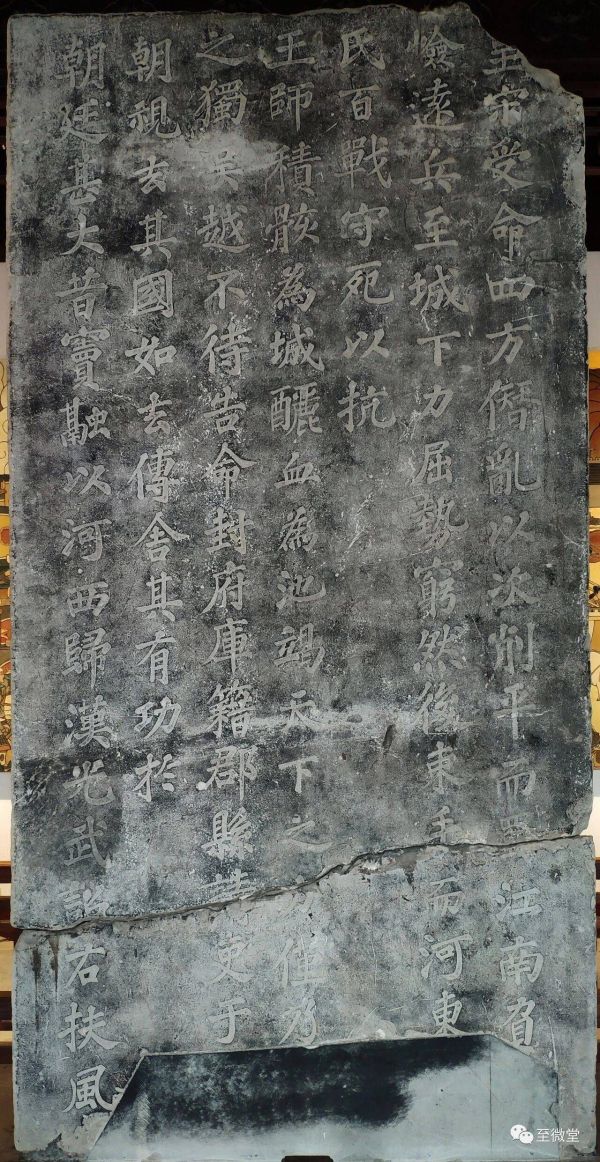 皇宋受命四方僭亂以次削平而江南負
嶮遠兵至城下力屈勢窮然後束手而河東
氏百戰守死以抗
王師積骸為城釃血為池竭天下之力僅乃
之獨吳越不待告命封府庫籍郡縣請吏于
朝視去其國如去傳舍其有功於
朝廷甚大昔竇融以河西歸漢光武詔右扶風
至微堂